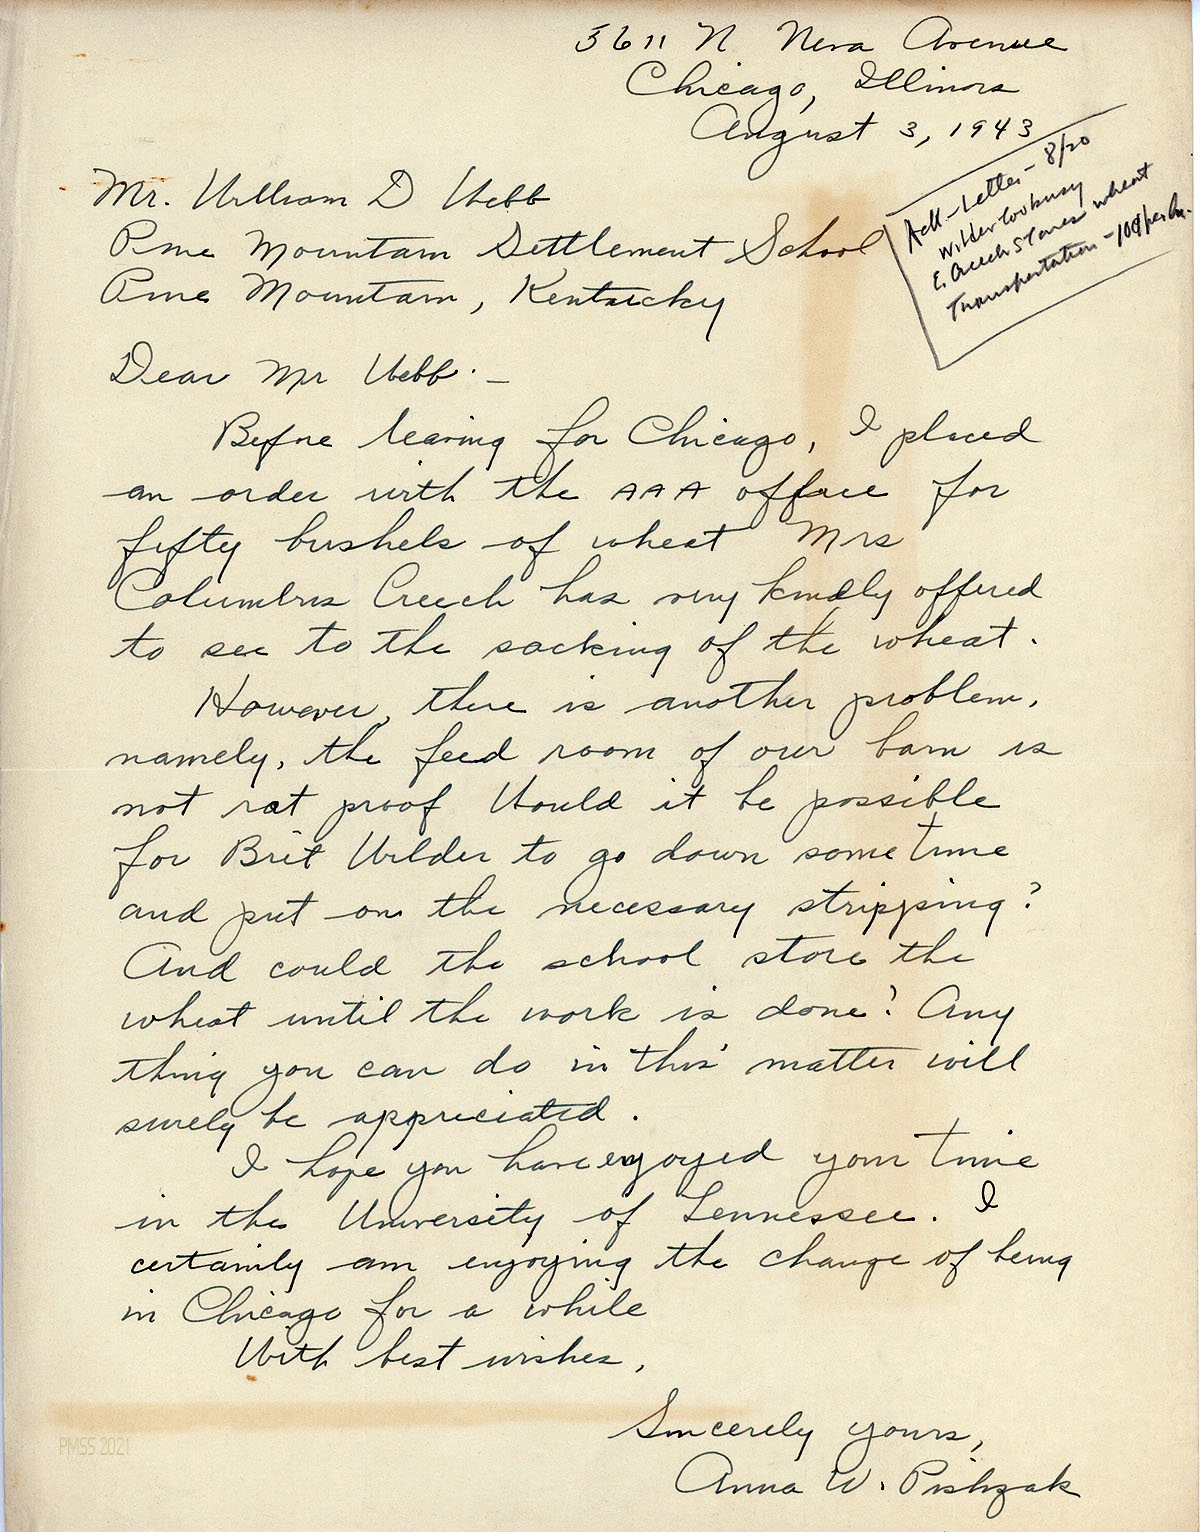 3611 N Nora Avenue
Chicago, Illinois
August 3, 1943
Ack-Letter - 8/20
Wilder too busy
E. Creech stores wheat
Transportation - 10¢ per bu.
Mr. William D Webb
Pine Mountain Settlement School
Pine Mountain, Kentucky
Dear Mr Webb: -
Before leaving for Chicago, I placed
an order with the AAA office for
fifty bushels of wheat Mrs
Columbus Creech has very kindly offered
to see to the sacking of the wheat.
However, there is another problem,
namely, the feed room of our barn is
not rat proof Would it be possible
for Brit Wilder to go down some time
and put on the necessary stripping?
And could the school store the
wheat until the work is done? Any
thing you can do in this matter will
surely be appreciated.
I hope you have enjoyed your time
in the University of Tennessee. I
certainly am enjoying the change of being
in Chicago for a while
With best wishes,
Sincerely yours,
Anna W. Pishzak
PMSS 2021